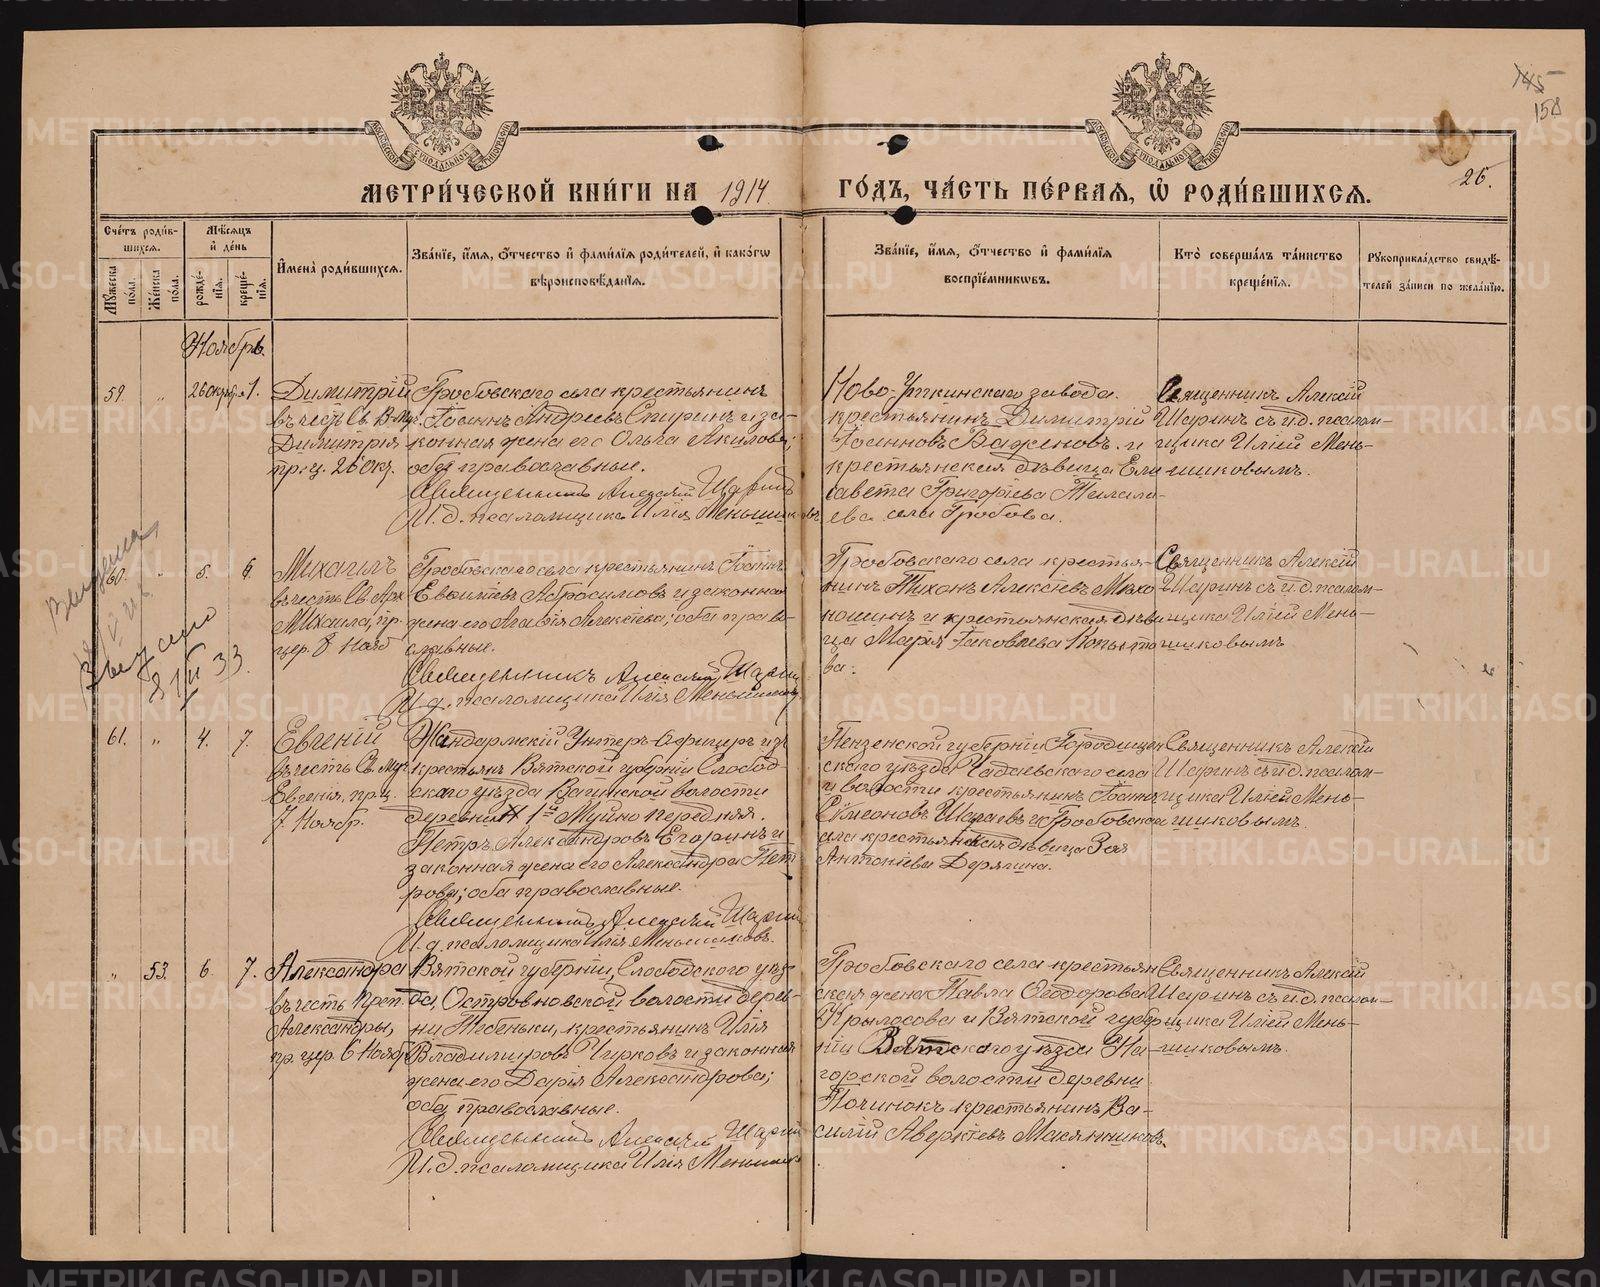 145
158
МЕТРИ́ЧЕСКОЙ КНИ́ГИ НА 1914
ГО́ДЪ, ЧА́СТЬ ПЕ́РВАЯ, Ѽ РОДИ́ВШИХСѦ.
26.
Сче́тъ роди́в-
шихся.
Мѣ́сяцъ
и҆ де́нь
Му́жеска
по́ла.
Же́нска
по́ла.
рожде́-
нїя.
креще́-
нїя.
И҆мена̀ роди́вшихся.
Зва́нїе, и҆́мя, ѻ҆́тчество и҆ фами́лїя роди́телей, и҆ како́гѡ
вѣроисповѣ́данїя.
Зва́нїе, и҆́мя, ѻ҆́тчество и҆ фами́лїя
воспрїе́мникѡвъ.
Кто̀ соверша́лъ та́инство
креще́нїя.
Рꙋкоприкла́дство свидѣ́-
телей за́писи по жела́нїю.
Ноябрь
59. " 26 октября 1.
Димитрій
въ честь Св. В-Муч.
Димитрія
пр. ц. 26 Окт.
Гробовскаго села крестьянинъ
Іоаннъ Андреевъ Спиринъ и за-
конная жена его Ольга Акилова;
оба православные.
Священникъ Алексѣй Шаринъ
И. д. псаломщика Илія Меньшиковъ
Ново-Уткинскаго завода
крестьянинъ Димитрій
Іоанновъ Баженовъ и
крестьянская дѣвица Ели-
савета Григоріева
ева села Гробова.
Священникъ Алексій
Шаринъ съ и. д. псалом-
щика Иліей Мень-
шиковымъ.
60. " 5. 6.
Михаилъ
въ честь Св. Арх.
Михаила, пр.
цер. 8 Нояб.
Гробовскаго села крестьянинъ Іоаннъ
Евѳиміевъ Абросимовъ и законная
жена его Агафія Алексіева; оба право-
славные.
Священникъ Алексѣй Шаринъ
И. д. псаломщика Илія Меньшиковъ
Гробовскаго села крестья-
нинъ Тихонъ Алексіевъ Мохо-
ношинъ и крестьянская дѣви-
ца Марія Іаковлева Копыто-
ва.
Священникъ Алексій
Шаринъ съ и. д. псалом-
щика Иліей Мень-
шиковымъ
61. " 4. 7.
Евгеній
въ честь Св. Муч.
Евгенія, пр. ц.
7 Ноябр.
Жандармскій Унтеръ-Офицеръ изъ
крестьянъ Вятской губерніи Слобод-
скаго уѣзда Вагинской волости
деревни 1й Муйно передняя.
Петръ Александровъ Егоринъ и
законная жена его Александра Пет-
рова; оба православные.
Священникъ Алексѣй Шаринъ
И. д. псаломщика Илія Меньшиковъ.
Пензенской губерніи Городищен-
скаго уѣзда Чадаевскаго села
и волости крестьянинъ Іоаннъ
Сѵмеоновъ Шираевъ и Гробовскаго
села крестьянская дѣвица Зоя
Антоніева Дерягина.
Священникъ Алексій
Шаринъ съ и. д. псалом-
щика Иліей Мень-
шиковымъ.
" 53. 6. 7.
Александра
въ честь Преп.
Александры,
пр. цер. 6 Нояб.
Вятской губерніи, Слободского уѣз-
да, Островновской волости дерев-
ни Тебеньки, крестьянинъ Илія
Владиміровъ Чирковъ и законная
жена его Дарія Александрова;
оба православные.
Священникъ Алексѣй Шаринъ
И. д. псаломщика Илія Меньшиковъ
Гробовскаго села крестьян-
ская жена Павла Ѳеодорова
Крылосова и Вятской губер-
ніи Вятскаго уѣзда На-
горской волости деревни
Починокъ крестьянинъ Ва-
силій Аверкіевъ Макянниковъ.
Священникъ Алексій
Шаринъ съ и. д. псалом-
щика Иліей Мень-
шиковымъ.
METRIKI.GASO-URAL.RU